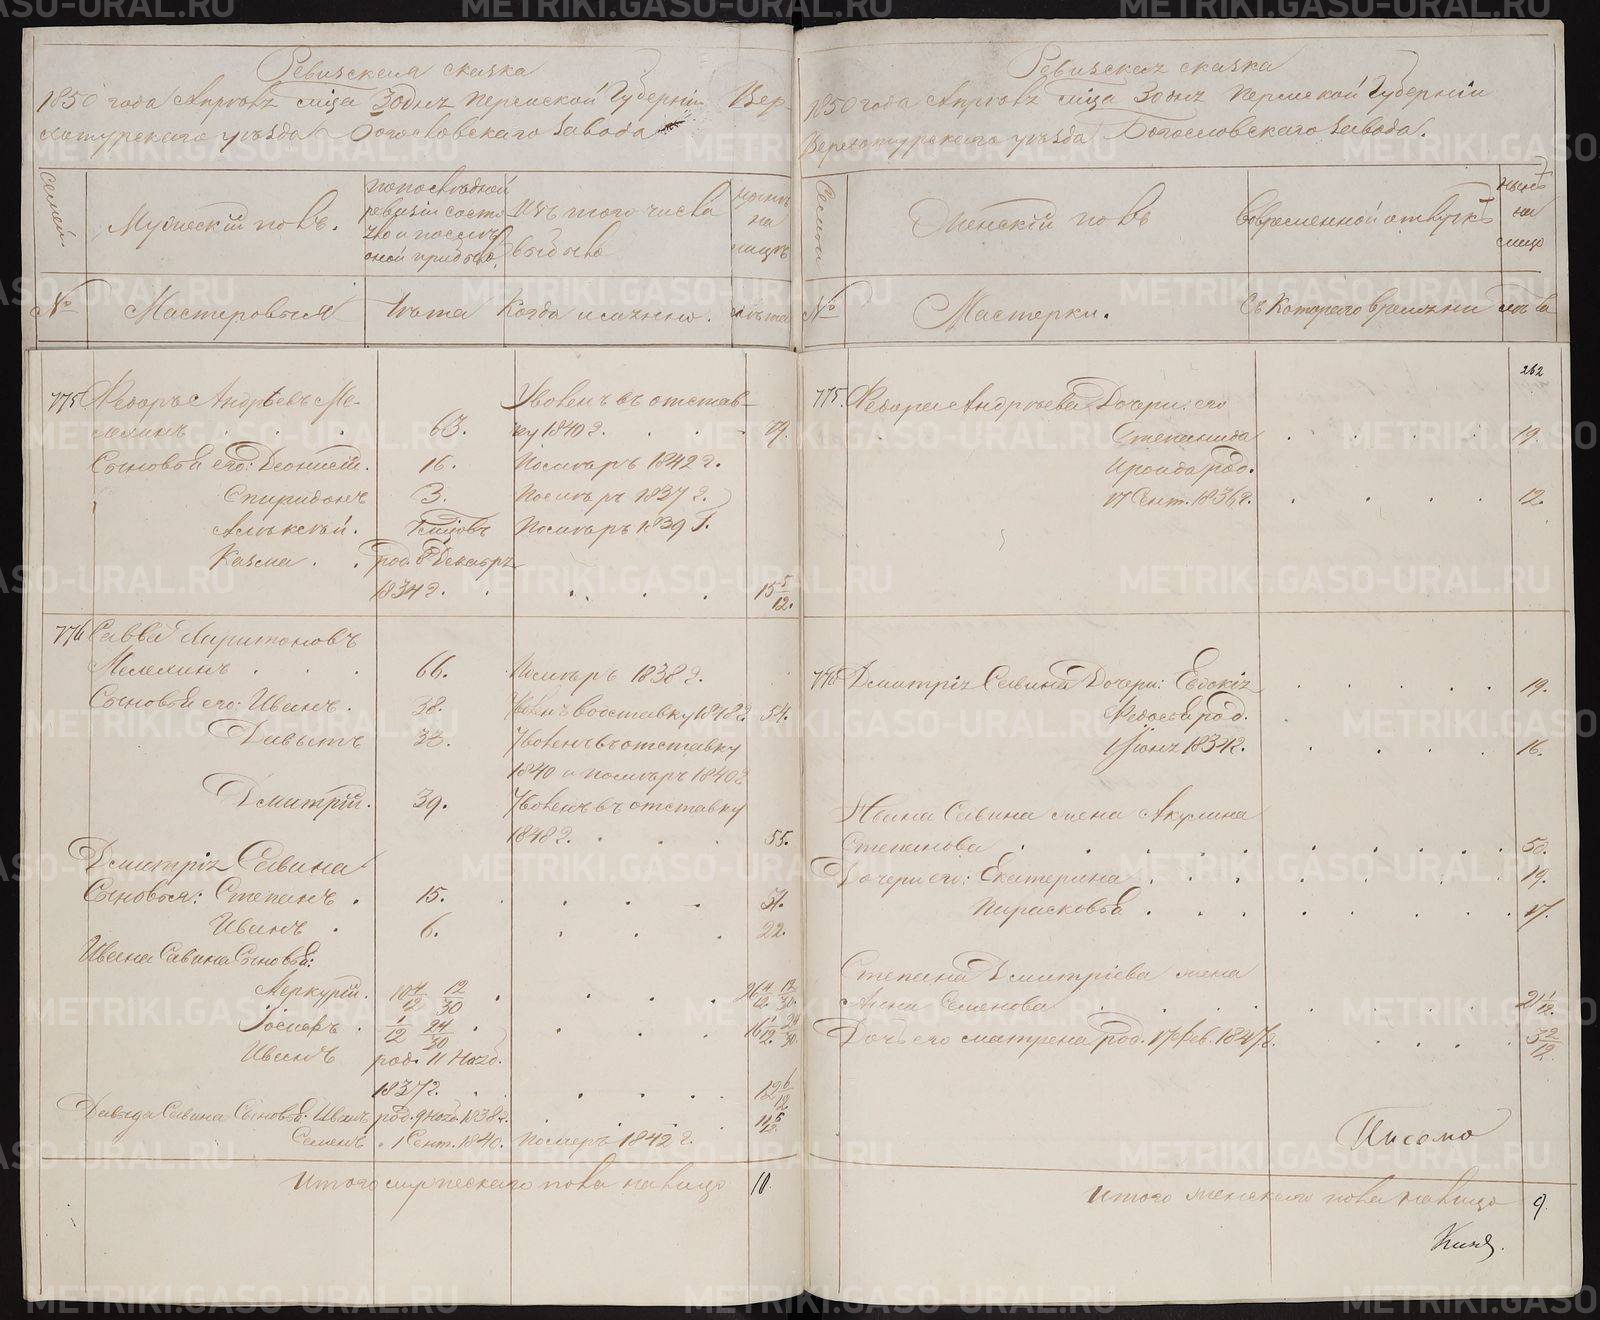 Ревизская сказка
1850 года Апрѣля мѣсяца 30 дня Пермской Губерніи Вер-
хотурскаго уѣзда Богословскаго завода
Семей
Мужескій полъ.
по послѣдней ревизіи состояло и послѣ оной прибыло
Изъ того числа выбыло
нынѣ на лицо
№
Мастеровыя
лѣта
Когда именно.
лѣта
775 Федоръ Андрѣевъ Ме-
Уволенъ въ отстав-
лехинъ . . . 63. ку 1840 г. . . .
Сыновья его: Деонисій. 16. Померъ 1842 г.
Спиридонъ 3. Померъ 1837 г.
Алѣксѣй. Померъ 1839 г.
Казма . . род. 8 Декабря
1834 г. . . . . 15 5/12.
776 Савва Харитоновъ
Мелехинъ . . . 66. Померъ 1838 г.
Сыновья его: Иванъ. 38. Уволенъ в отставку 1848 г. 54.
Давыдъ 33. Уволенъ въ отставку
1840 и померъ 1840 г.
Дмитрій. 39. Уволенъ въ отставку
1848 г. . . . 55.
Дмитрія Савина
Сыновья: Степанъ . 15. . . . . 31.
Иванъ . 6. . . . 22.
Ивана Савина Сыновья:
Меркурій. 10 4/12 12/30 . . . . 26 4/12 12/30.
Іосифъ . 1/12 24/30 . . . . 16 1/12 24/30.
Иванъ род. 11 Нояб.
1837 г. . . . . 12 6/12
Давыда Савина Сыновья: Иванъ род. 9 Нояб. 1838 г. . . . . 11 6/12.
Семенъ . 1 Сент. 1840. Померъ 1842 г.
Итого мужескаго пола на лицо 10.
Ревизская сказка
1850 года Апрѣля мѣсяца 30 дня Пермской Губерніи
Верхотурскаго уѣзда Богословскаго завода.
Семьи
Женскій полъ
Во временной отлучкѣ
нынѣ на лицо
№
Мастерки.
Съ Котораго времѣни
лѣта
262
775. Федора Андрѣева Дочери: его
Степанида . . . . 19.
Ироида род.
17 Сент. 1836 г. . . . . 12.
776 Дмитрія Савина Дочери: Евдокія . . . . . 19.
Федосья род.
1834 г. . . . . 16.
Ивана Савина жена Акулина
Степанова . . . . . . . 50.
Дочери его: Екатерина . . . . . 19.
Парасковья . . . . . . 17.
Степана Дмитріева жена
Анна Семенова . . . . . . 21 1/12.
Дочь его матрена род. 17 Фев. 1847 г. . . . . 3 2/12.
Итого женскаго пола на лицо 9.
METRIKI.GASO-URAL.RU